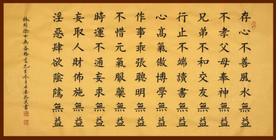 存心不善風水無益
不孝父母奉神無益
兄弟不和交友無益
行止不端讀書無益
心高氣傲博學無益
作事乖張聰明無益
不惜元氣服藥無益
時運不通妄求無益
妄取人財佈施無益
淫惡肆欲陰騭無益
林則徐十無益格言